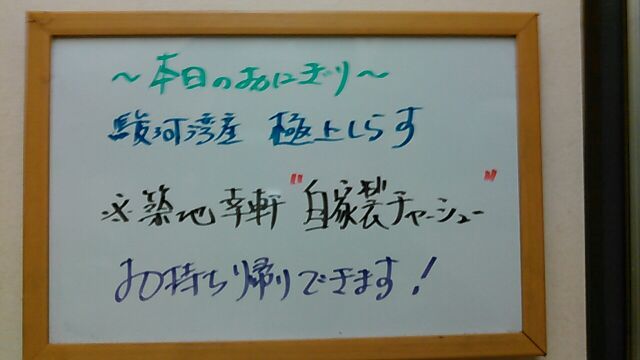 ～本日のおにぎり～
駿河湾産 極上しらす
※築地幸軒"自家製チャーシュー"
お持ち帰りできます！